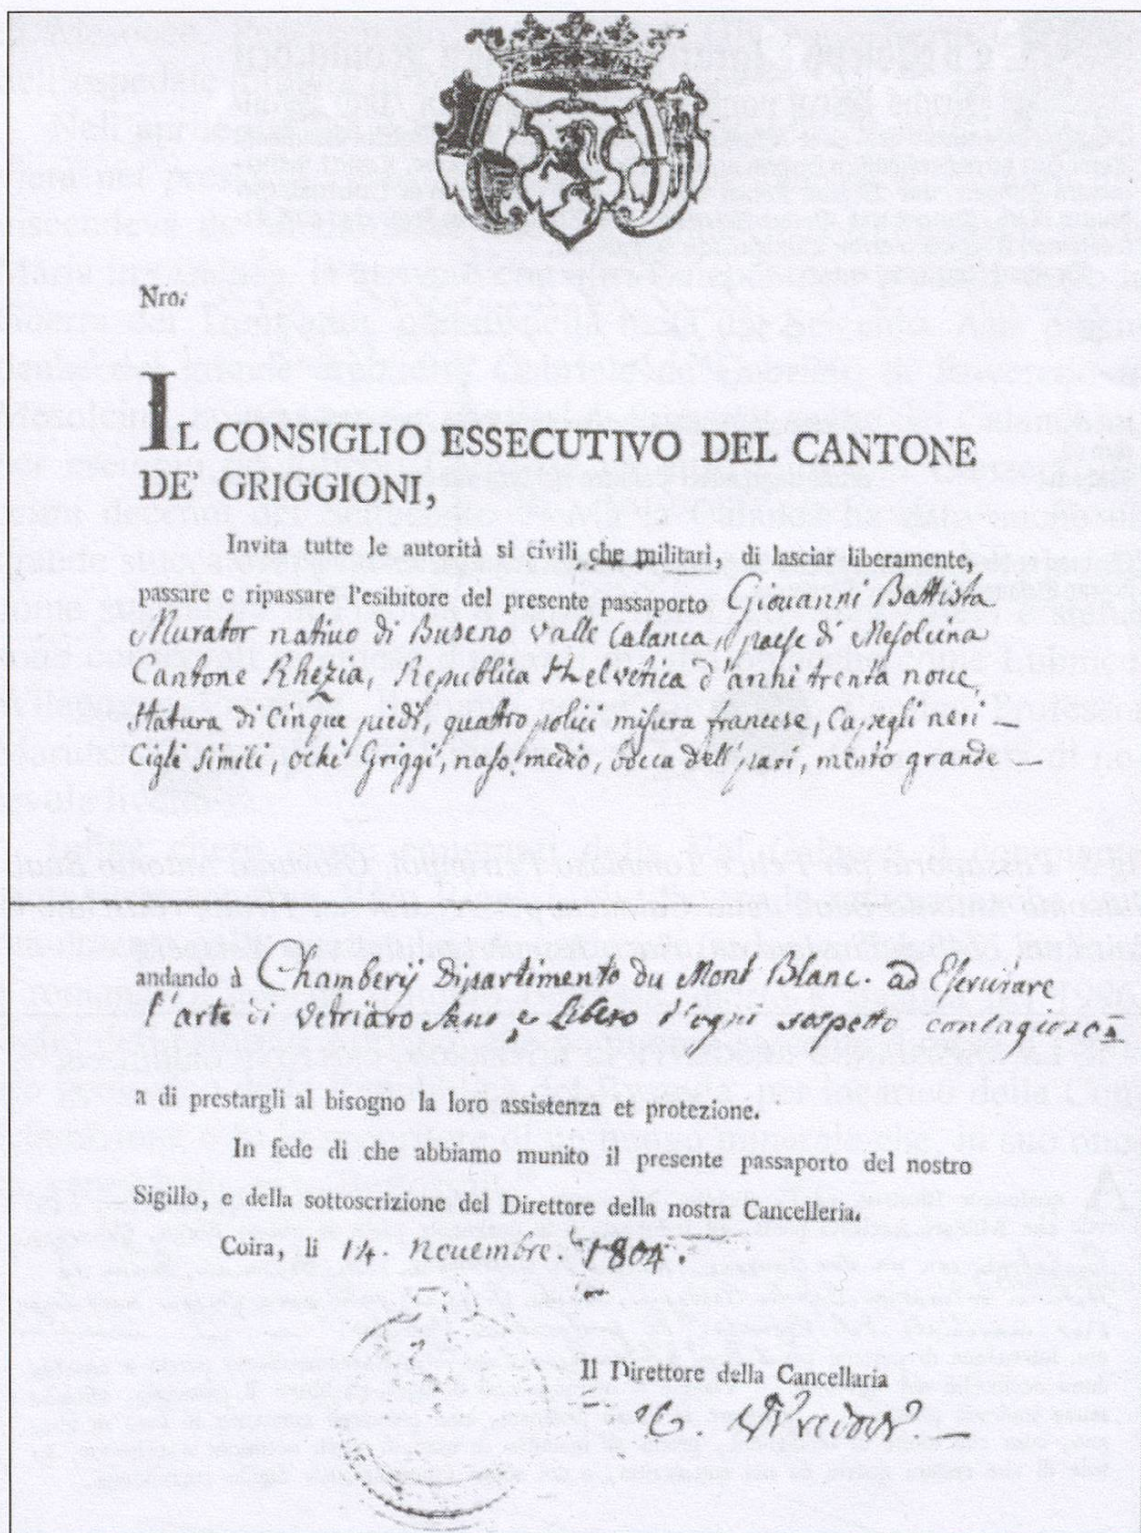 Nro.
IL CONSIGLIO ESSECUTIVO DEL CANTONE
DE' GRIGGIONI,
Invita tutte le autorità si civili che militari, di lasciar liberamente,
passare e ripassare l'esibitore del presente passaporto Giovanni Battista
Murator nativo di Buseno valle Calanca, paese di Mesolcina
Cantone Rhezia, Republica Helvetica d'anni trenta noue,
statura di Cinque piedi, quattro polici misura francese, Capegli neri —
Cigli simili, ochi Griggi, naso medio, bocca dell' pari, mento grande —
andando à Chamberij Dipartimento du Mont Blanc. ad Esercirare
l'arte di vetriaro sano e Libero d'ogni sospetto contagioso
a di prestargli al bisogno la loro assistenza et protezione.
In fede di che abbiamo munito il presente passaporto del nostro
Sigillo, e della sottoscrizione del Direttore della nostra Cancelleria.
Coira, li 14. nouembre. 1804.
Il Direttore della Cancellaria